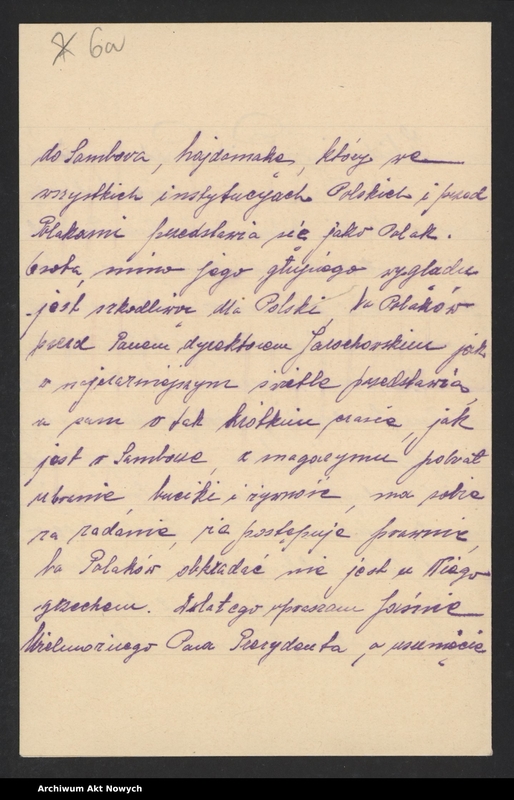 6a
do Sambora, hajdamaka, który we
wszystkich instytucyjach Polskich i przed
Polakami przedstawia się jako Polak.
Osoba, mimo jego głupiego wyglądu
jest szkodliwa dla Polski, bo Polaków
przed Panem dyrektorem Jarochowskim jak
w najczarniejszym świetle przedstawia,
a sam w tak krótkim czasie, jak
jest w Samborze, z magazynu pobrał
ubranie, buciki i żywność, ma sobie
za zadanie, że postępuje prawnie,
bo Polaków obkradać nie jest u Niego
grzechem. Dlatego upraszam Jaśnie
Wielmożnego Pana Prezydenta, o usunięcie
Archiwum Akt Nowych